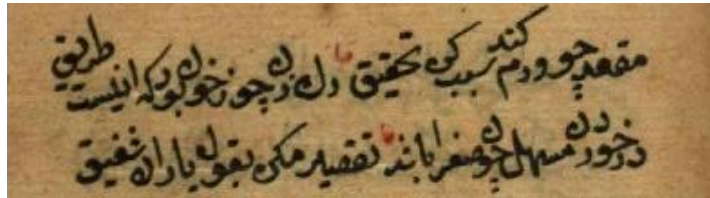 مقعد چو ورم کند سبب کن تحقیق رک زن چو ز خون بود که اینست طریق
در خوردن مسهل چو صفرا باشد تقصیر مکن بقول یاران شفیق